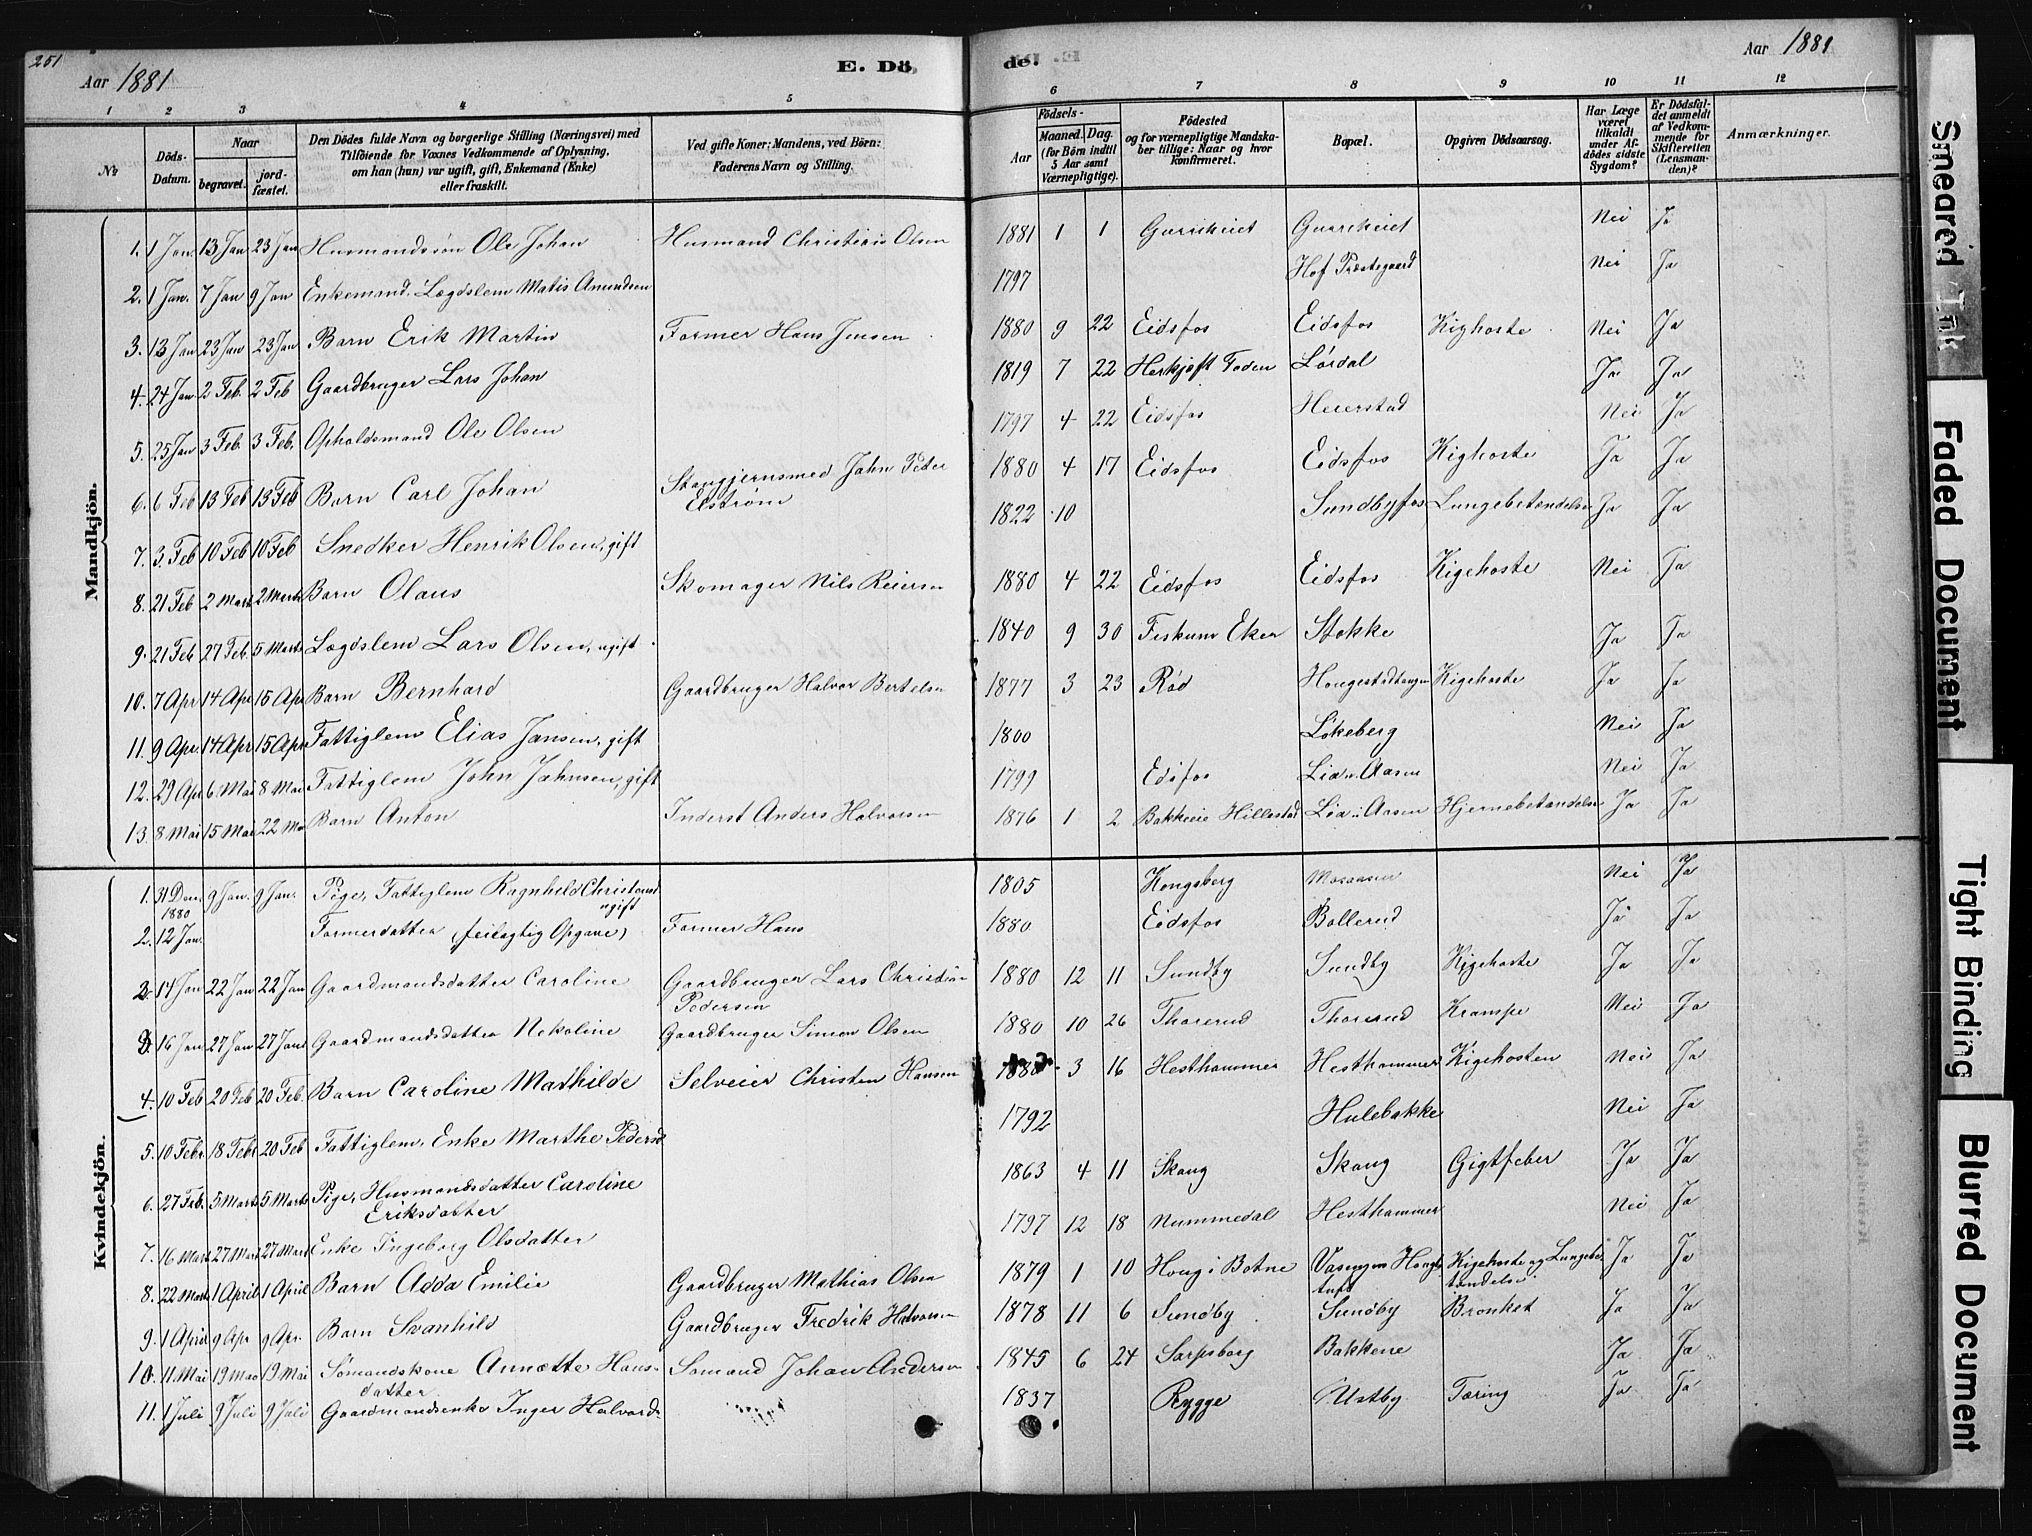 251
Aar 1881
E. Dö
de.
Aar 1881
1 2 3 4 5 6 7 8 9 10 11 12
No
Döds-Datum.
Naar
begravet.
jordfæstet.
Den Dödes fulde Navn og borgerlige Stilling (Næringsvei) med
Tilföiende for Voxnes Vedkommende af Oplysning,
om han (hun) var ugift, gift, Enkemand (Enke)
eller fraskilt.
Ved gifte Koner: Mandens, ved Börn:
Faderens Navn og Stilling.
Födsels-
Aar
Maaned. Dag.
(for Börn indtil
5 Aar samt
Værnepligtige).
Födested
og for værnepligtige Mandska-
ber tillige: Naar og hvor
Konfirmeret.
Bopæl.
Opgiven Dödsaarsag.
Har Læge
været
tilkaldt
under Af-
dödes sidste
Sygdom?
Er Dödsfal-
det anmeldt
af Vedkom-
mende for
Skifteretten
(Lensman-
den)?
Anmærkninger.
Mandkjön.
1. 1 Jan. 13 Jan 23 Jan Husmandssøn Ole Johan Husmand Christian Olsen 1881 1 1 Nei Ja
2. 1 Jan. 7 Jan 9 Jan Enkemand. Lægdslem Matis Amundsen 1797 Hof Præstegaard Nei Ja
3. 13 Jan 23 Jan 23 Jan Barn Erik Martin Former Hans Jensen 1880 9 22 Eidsfos Eidsfos Kighoste Nei Ja
4. 24 Jan 2 Feb. 2 Feb Gaardbruger Lars Johan 1819 7 22 Lørdal Ja Ja
5. 25 Jan 3 Feb. 3 Feb. Opholdsmand Ole Olsen 1797 4 22 Eidsfos Heierstad Nei Ja
6. 6 Feb 13 Feb 13 Feb Barn Carl Johan Stangjernsmed Jahn Peder
Elstrøm 1880 4 17 Eidsfos Eidsfos Kighoste Ja Ja
7. 3 Feb 10 Feb 10 Feb Snedker Henrik Olsen, gift 1822 10 Sundbyfos Lungebetændelse Ja Ja
8. 21 Feb 2 Marts 2 Marts Barn Olaus Skomager Nils Reiersen 1880 4 22 Eidsfos Eidsfos Kigehoste Nei Ja
9. 21 Feb 27 Feb. 5 Marts Lægdslem Lars Olsen, ugift 1840 9 30 Fiskum Eker Stokke Ja Ja
10. 7 Apr 14 Apr 15 Apr Barn Bernhard Gaardbruger Halvor Bertelsen 1877 3 23 Rød Kigehoste Ja Ja
11. 9 Apr. 14 Apr 15 Apr Fattiglem Elias Jansen, gift 1800 Løkeberg Nei Ja
12. 29 Apr 6 Mai 8 Mai Fattiglem John Jahnsen, gift 1799 Edsfos Lia u. Aasen Nei Ja
13. 8 Mai 15 Mai 22 Mai Barn Anton Inderst Anders Halvorsen 1876 1 2 Bakkeeie Hillestad Lia u Aasen Hjernebetændelse Ja Ja
Kvindekjön.
1. 31 Dec.
1880 9 Jan. 9 Jan. Pige, Fattiglem Ragnhild Christensd
ugift 1805 Kongsberg Nei Ja
2. 12 Jan. Formerdatter (feilagtig Opgave) Former Hans 1880 Eidsfos Bollerud Ja Ja
2. 14 Jan 22 Jan 22 Jan Gaardmandsdatter Caroline Gaardbruger Lars Christian
Pedersen 1880 12 11 Sundby Sundby Kigehoste Ja Ja
3. 16 Jan 27 Jan 27 Jan Gaardmandsdatter Nekoline Gaardbruger Simon Olsen 1880 10 26 Thorerud Thorerud Krampe Nei Ja
4. 10 Feb 20 Feb 20 Feb. Barn Caroline Mathilde Selveier Christen Hansen 1880 3 16 Hesthammer Hesthammer Kigehosten Nei Ja
5. 10 Febr. 18 Febr 20 Feb Fattiglem, Enke Marthe Pedersd 1792 Hulebakke Nei Ja
6. 27 Feb. 5 Marts 5 Marts Pige, Husmandsdatter Caroline
Eriksdatter 1863 4 11 Skaug Skaug Gigtfeber Ja Ja
7. 16 Marts 27 Marts 27 Marts Enke Ingeborg Olsdatter 1797 12 18 Nummedal Hesthammer Nei Ja
8. 22 Marts 1 April 1 April Barn Adda Emilie Gaardbruger Mathias Olsen 1879 1 10 Houg i Botne Kigehoste og Lungebe
tændelse Ja Ja
9. 1 April 9 Apr 9 Apr. Barn Svanhild Gaardbruger Fredrik Halvorsen 1878 11 6 Sundby Sundby Bronket Ja Ja
10. 11 Mai 19 Mai 19 Mai Sømandskone Annætte Hans-
datter Sømand Johan Andersen 1845 6 24 Sarpsborg Bakkene Ja Ja
11. 1 Juli 9 Juli 9 Juli Gaardmandsenke Inger Halvorsd 1837 Rygge Ustby Tæring Ja Ja
Smeared Ink
Faded Document
Tight Binding
Blurred Document